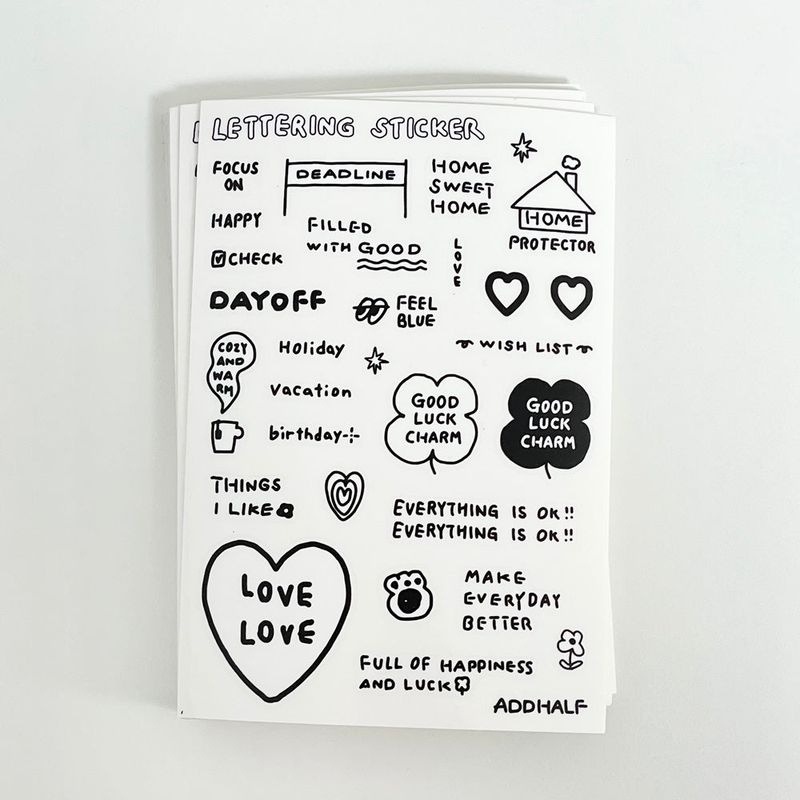 LETTERING STICKER
FOCUS
ON
DEADLINE
HOME
SWEET
HOME
HOME
PROTECTOR
HAPPY
FILLED
WITH GOOD
CHECK
LOVE
DAYOFF
FEEL
BLUE
WISH LIST
COZY
AND
WA
RM
Holiday
vacation
birthday
GOOD
LUCK
CHARM
GOOD
LUCK
CHARM
THINGS
I LIKE
EVERYTHING IS OK!!
EVERYTHING IS OK!!
LOVE
LOVE
MAKE
EVERYDAY
BETTER
FULL OF HAPPINESS
AND LUCK
ADDHALF